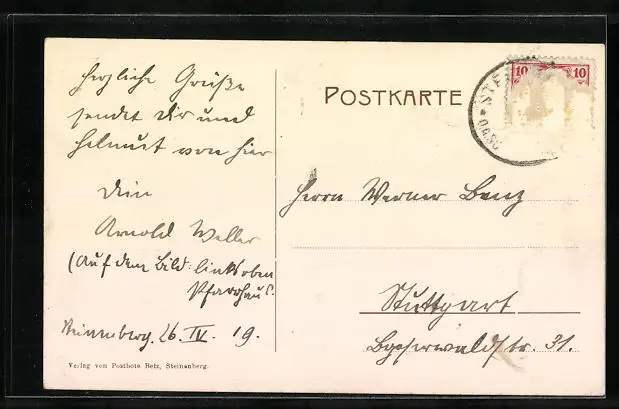 Herzliche Grüße
sendet Dir und
Helmut von hier
Dein
Arnold Weller
(Auf dem Bild: links oben
Pfarrhaus.
Steinenberg. 26. IV. 19.
Verlag vom Postbote Betz, Steinenberg.
POSTKARTE
10 10
Herrn Werner Benz
Stuttgart
str. 31.